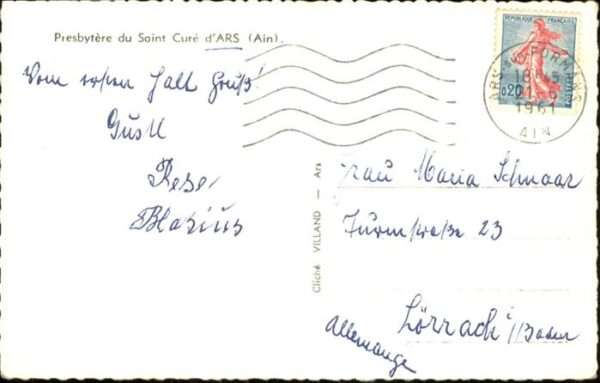 Presbytère du Saint Curé d'ARS (Ain).
Vom ersten Halt Gruß!
Gustl
Reser
Blasius
Cliché VILLAND — Ars
REPUBLIQUE FRANÇAISE
0,20
POSTES
ARS-SUR-FORMANS
18H15
1961
AIN
Frau Maria Schnaar
Turmstraße 23
Lörrach i/Baden
Allemange